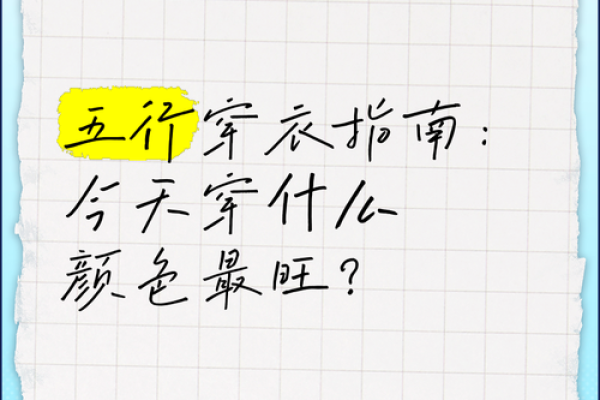 五行穿衣指南:
今天穿什么
颜色最旺?